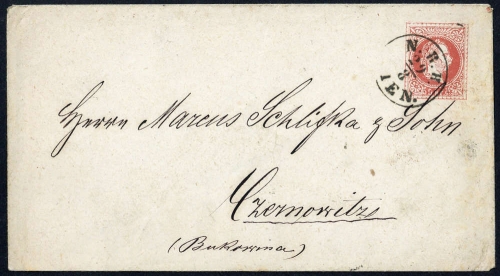 N. B. H
29
8
IEN.
Herrn Marcus Schlifka & Sohn
Czernowitz
(Bukowina)